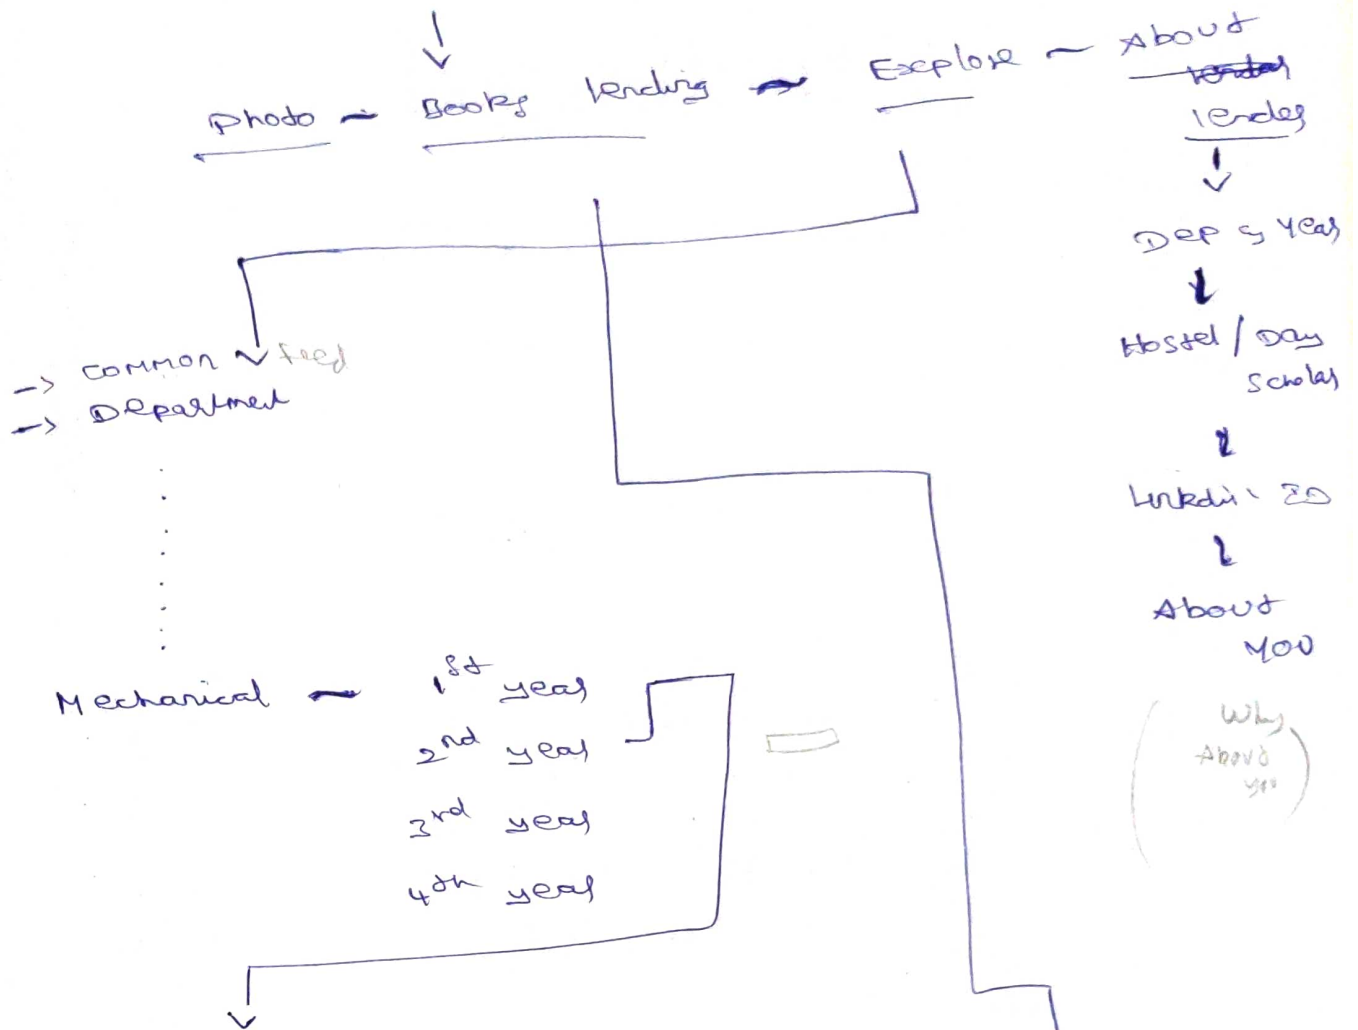 Photo ~ Books lending ~ Explore ~ About
lender
Dep & Year
Hostel / Day
Scholar
Linkdin ID
About
You
(Why
About
you)
-> Common feed
-> Department
Mechanical ~ 1st year
2nd year
3rd year
4th year